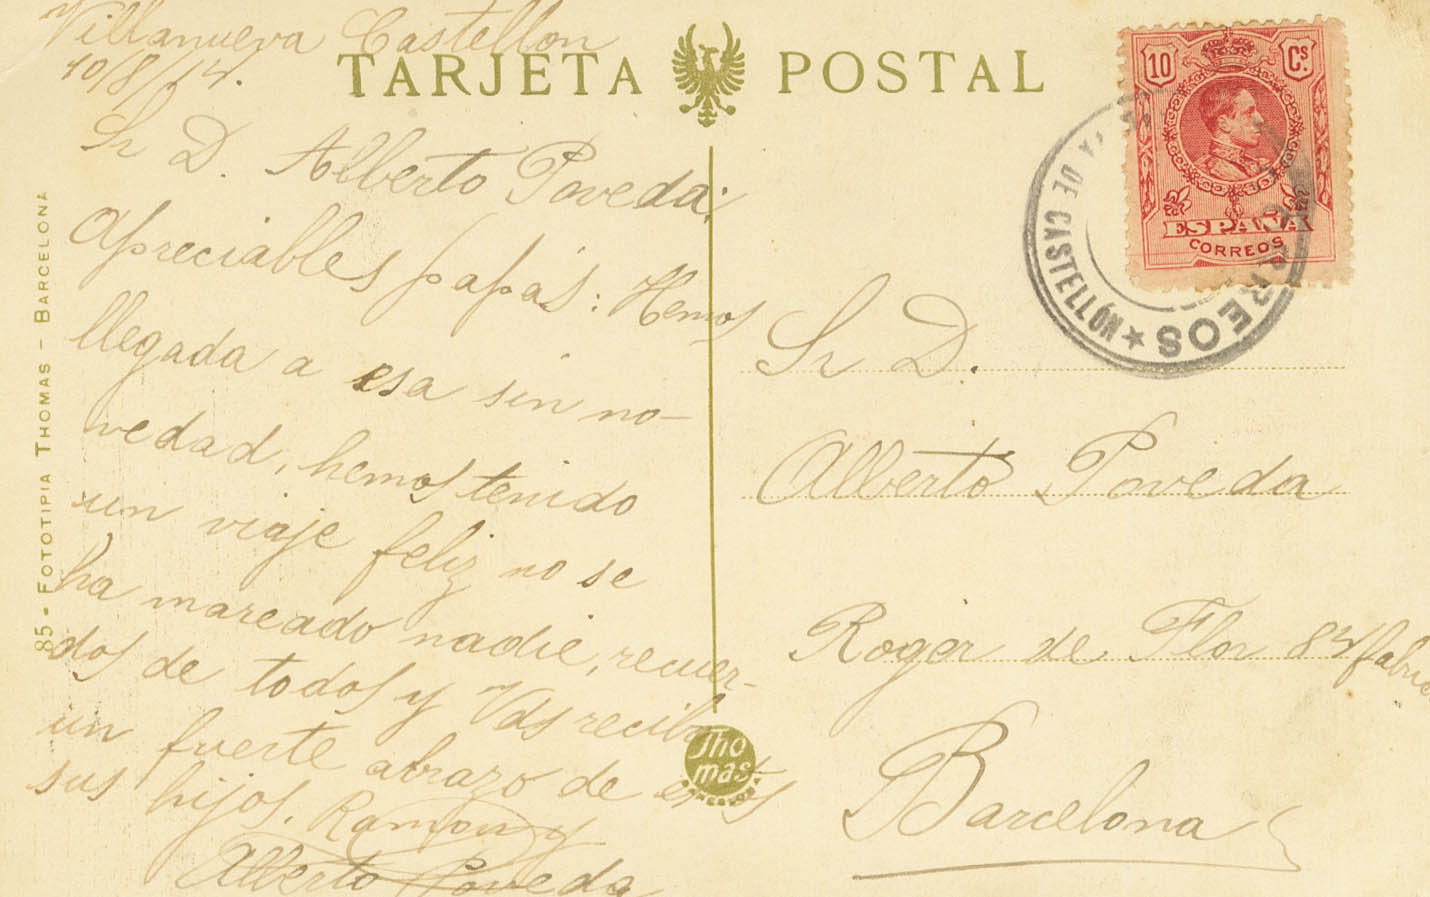 Villanueva Castellon
10/8/14.
TARJETA POSTAL
Sr D. Alberto Poveda:
Apreciables papás: Hemos
llegada a esa sin no-
vedad, hemos tenido
un viaje feliz no se
ha mareado nadie, recuer-
dos de todos y Vds reciban
un fuerte abrazo de estos
sus hijos. Ramon y
Alberto Poveda
85 - FOTOTIPIA THOMAS - BARCELONA
Thomas
BARCELONA
10 Cs.
ESPAÑA
CORREOS
DE CASTELLÓN ★ CORREOS
Sr D.
Alberto Poveda
Roger de Flor 84 fabrica
Barcelona